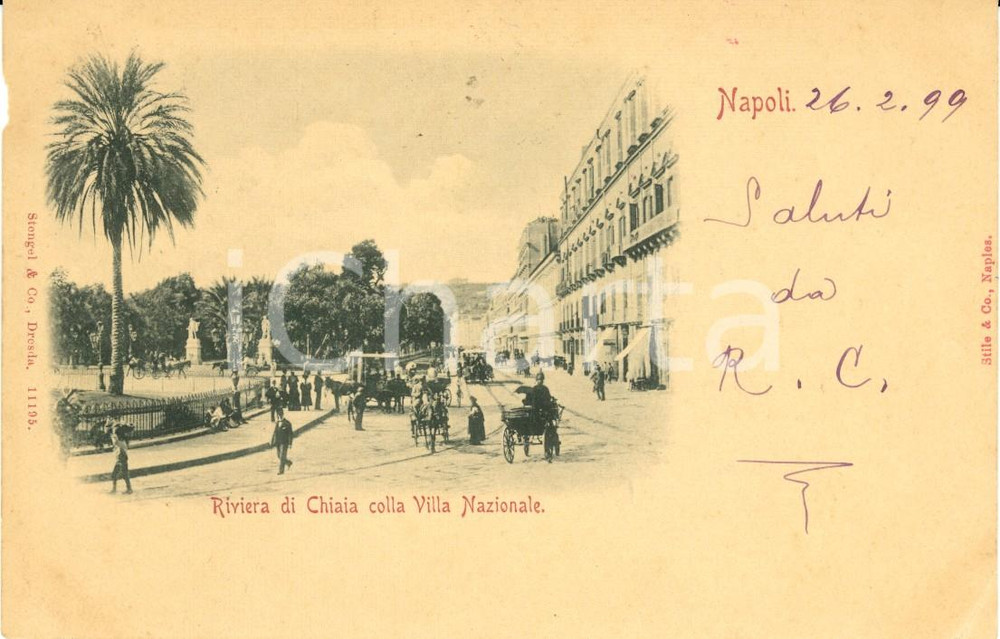 Napoli. 26. 2. 99
Saluti
da
R. C.
Riviera di Chiaia colla Villa Nazionale.
Stengel & Co., Dresda, 11195.
Stile & Co., Naples.
iCharta